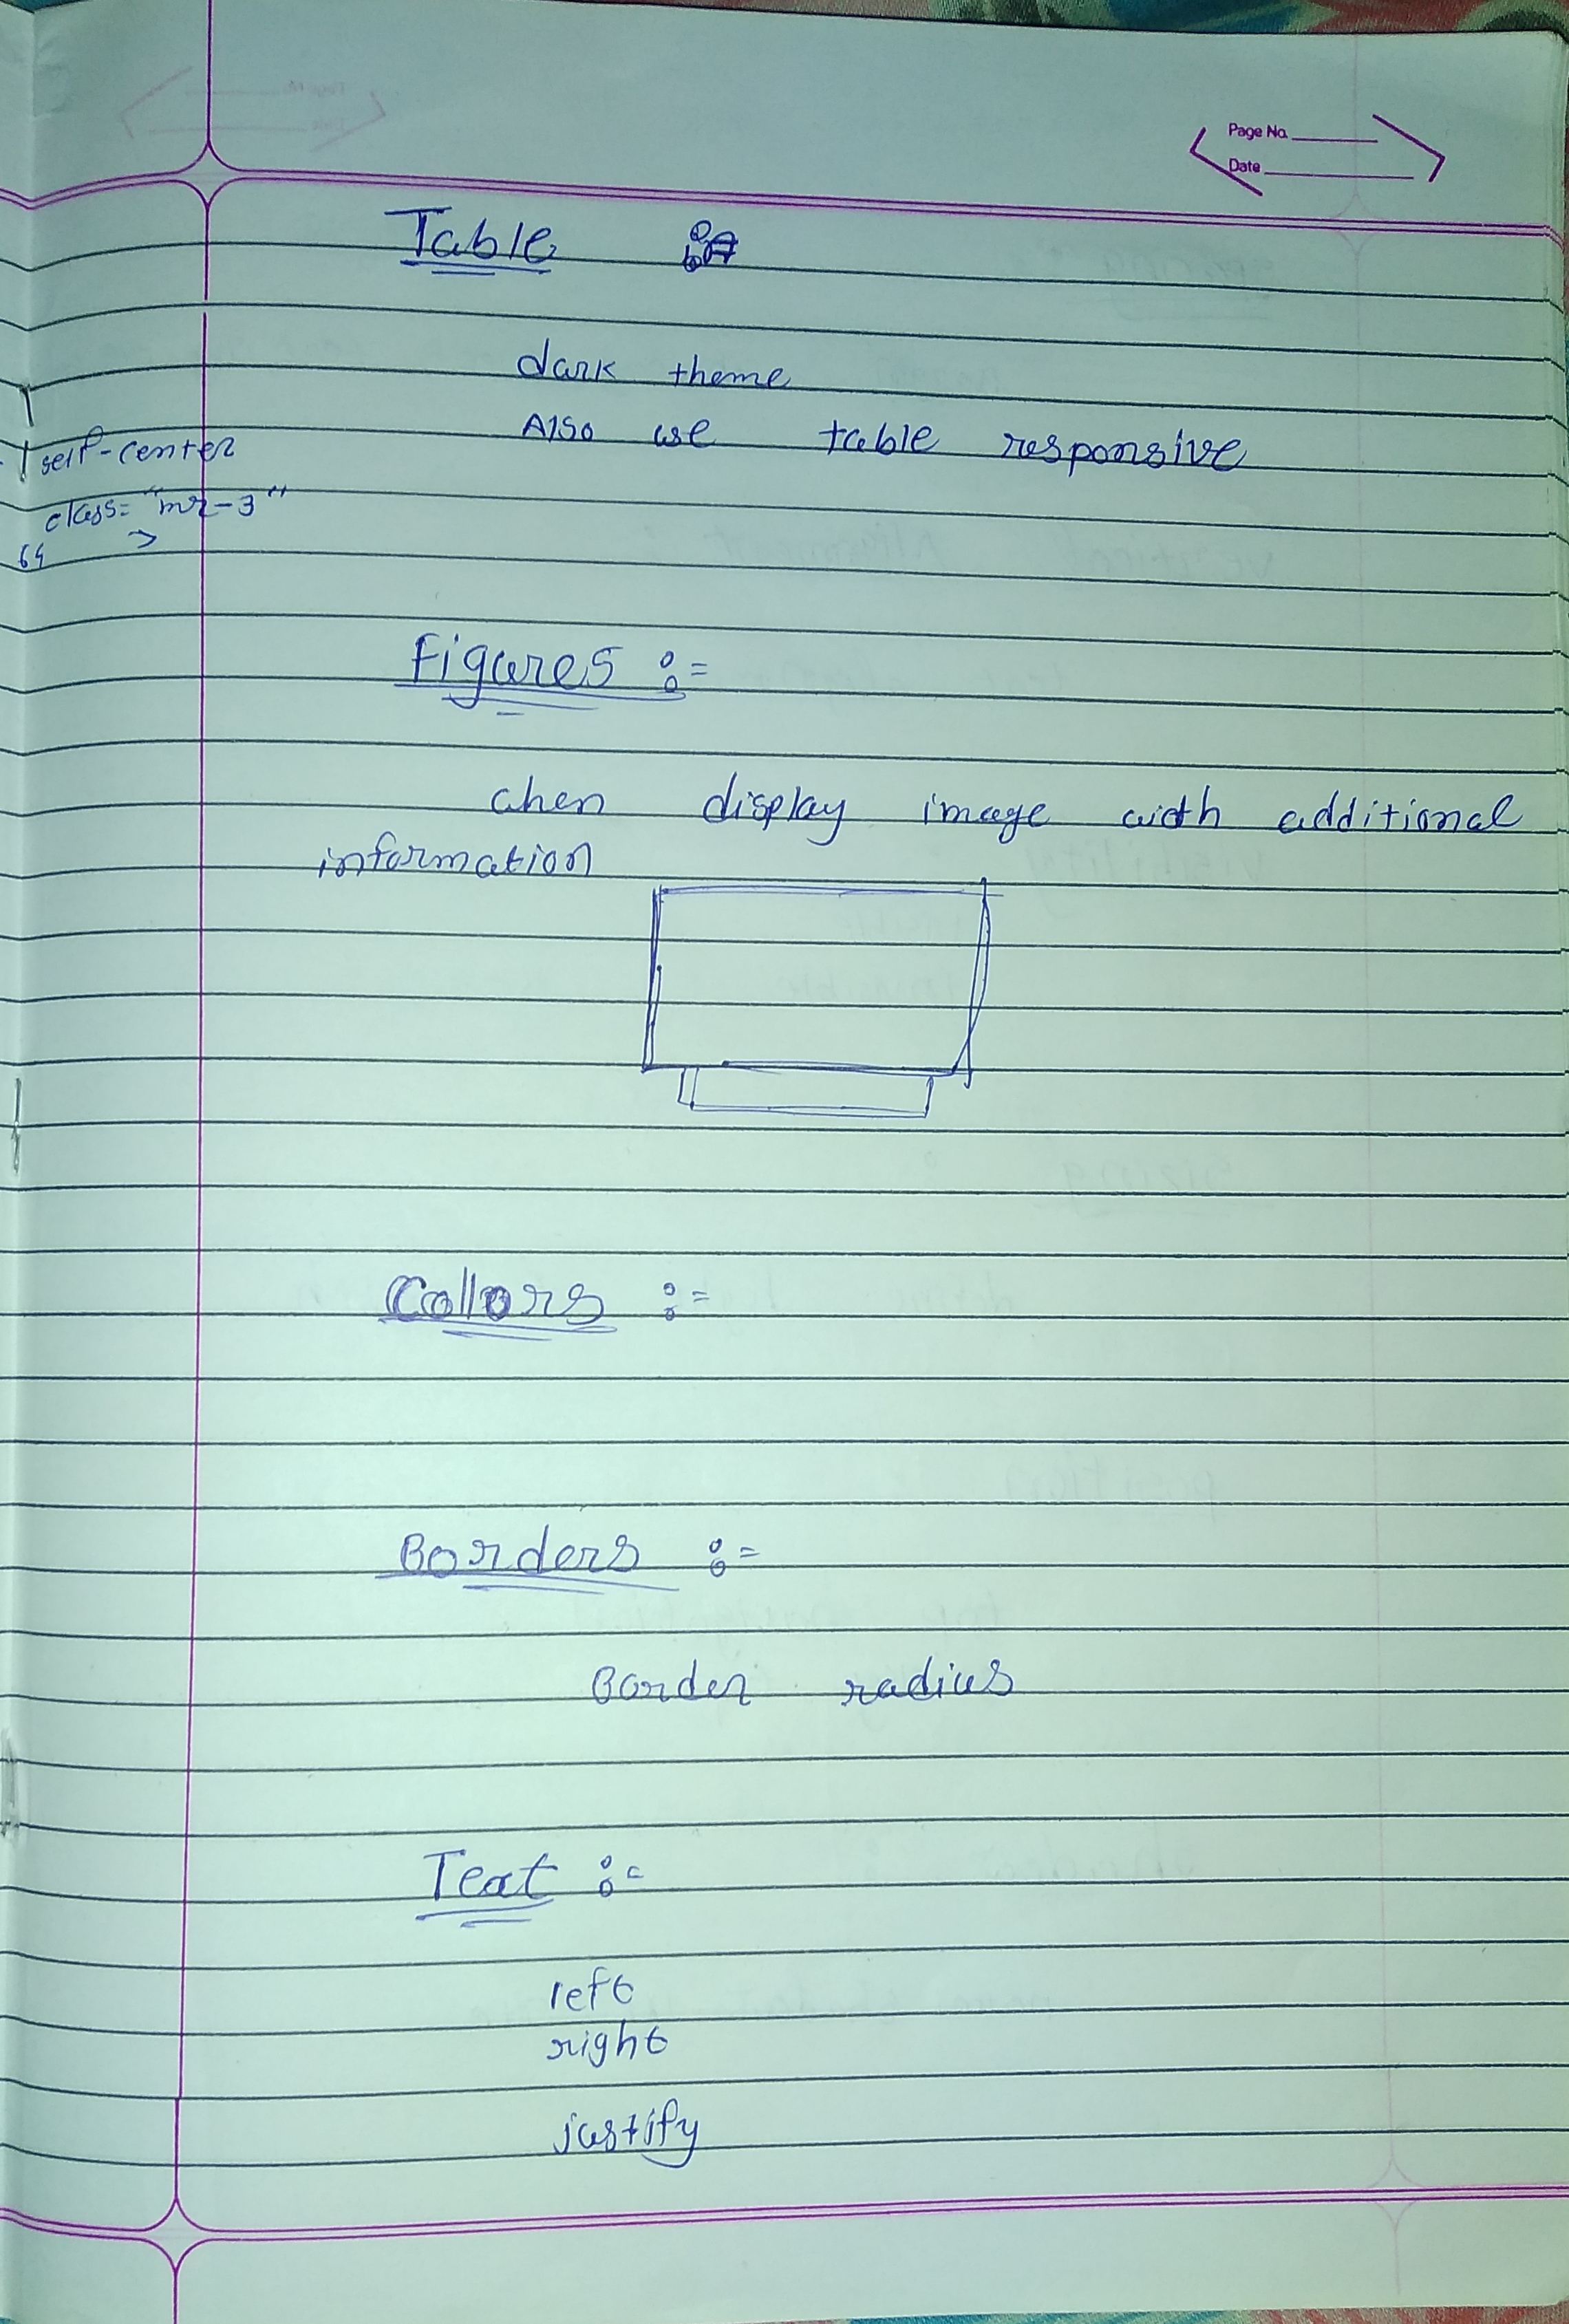 Page No.
Date
Table :=
dark theme
Also use table responsive
self-center
class= "mr-3"
64 >
Figures :=
when display image with additional
information
Collors :=
Borders :=
Border radius
Text :=
left
right
justify